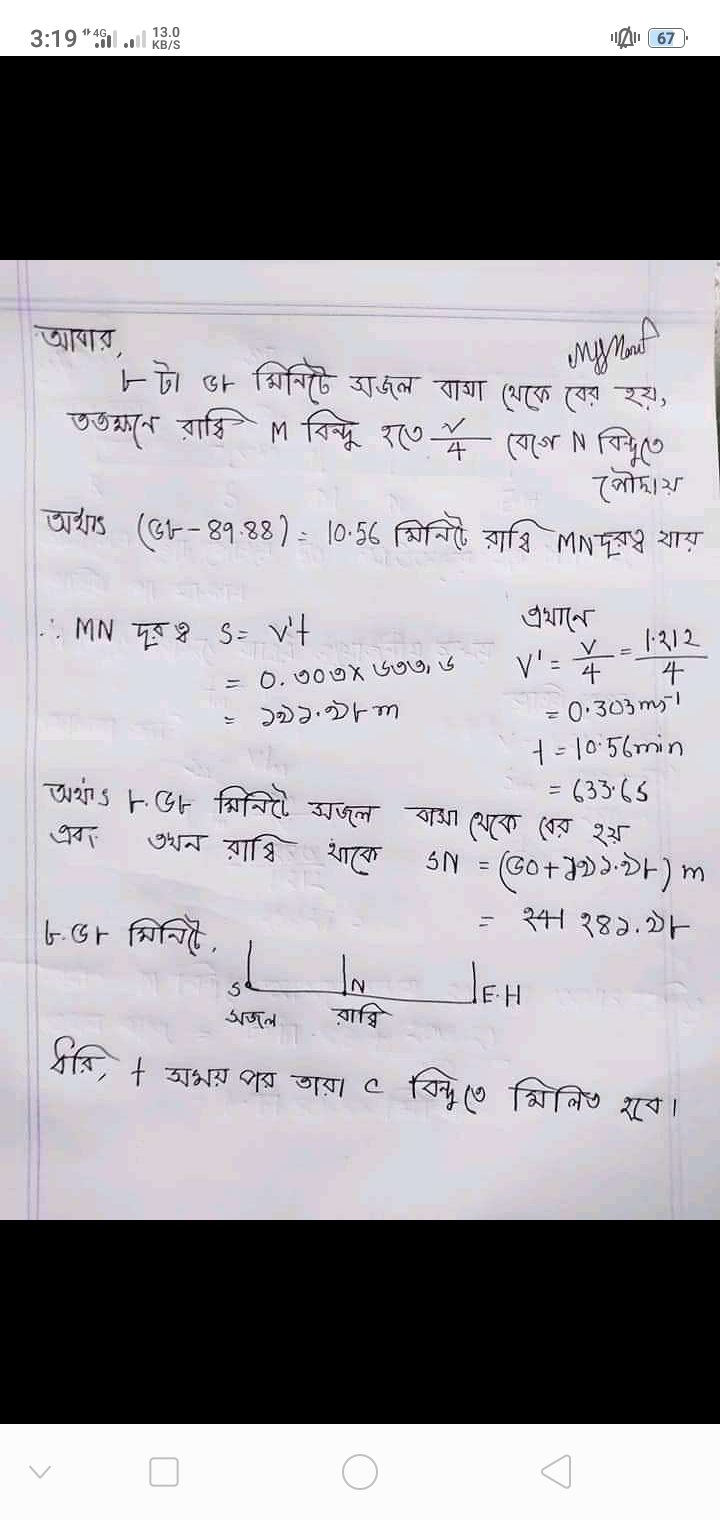 3:19 4G 13.0 KB/S 67
আবার,
৮ টা ৫৮ মিনিটে সজল বাসা থেকে বের হয়,
ততক্ষনে রাব্বি M বিন্দু হতে v/4 বেগে N বিন্দুতে
পৌছায়
অর্থাৎ (৫৮-89.88) = 10.56 মিনিটে রাব্বি MN দূরত্ব যায়
∴ MN দূরত্ব S = v't
= 0.৩০৩x৬৩৩.৬
= ১৯১.৯৮ m
এখানে
v' = v/4 = 1.212/4
= 0.303 ms⁻¹
t = 10.56 min
= 633.6 s
অর্থাৎ ৮.৫৮ মিনিটে সজল বাসা থেকে বের হয়
এবং তখন রাব্বি থাকে SN = (৫০+১৯১.৯৮) m
= ২৪১.৯৮
৮.৫৮ মিনিটে,
S N E.H
সজল রাব্বি
ধরি, t সময় পর তারা C বিন্দুতে মিলিত হবে।